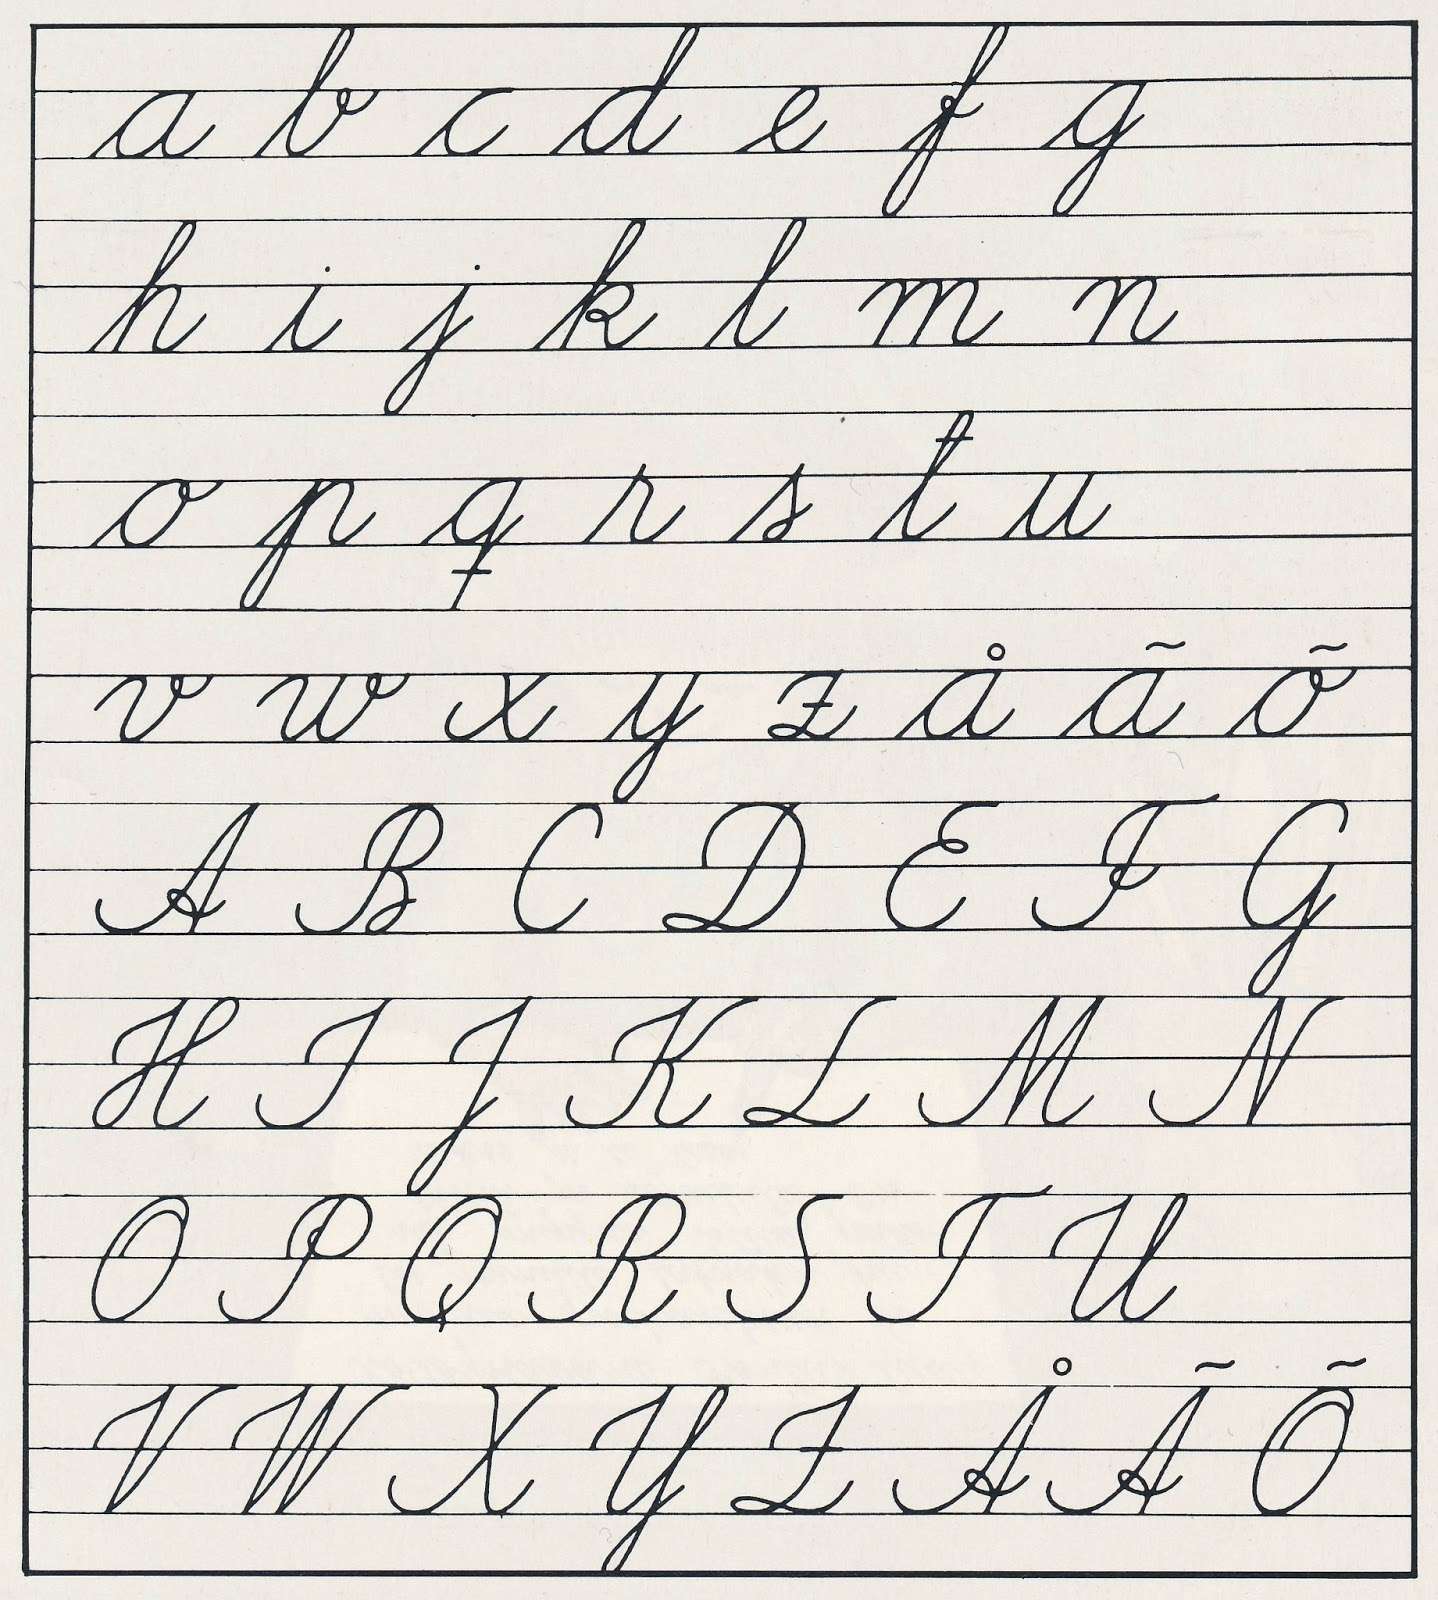 a b c d e f g
h i j k l m n
o p q r s t u
v w x y z å ã õ
A B C D E F G
H I J K L M N
O P Q R S T U
V W X Y Z Å Ã Õ